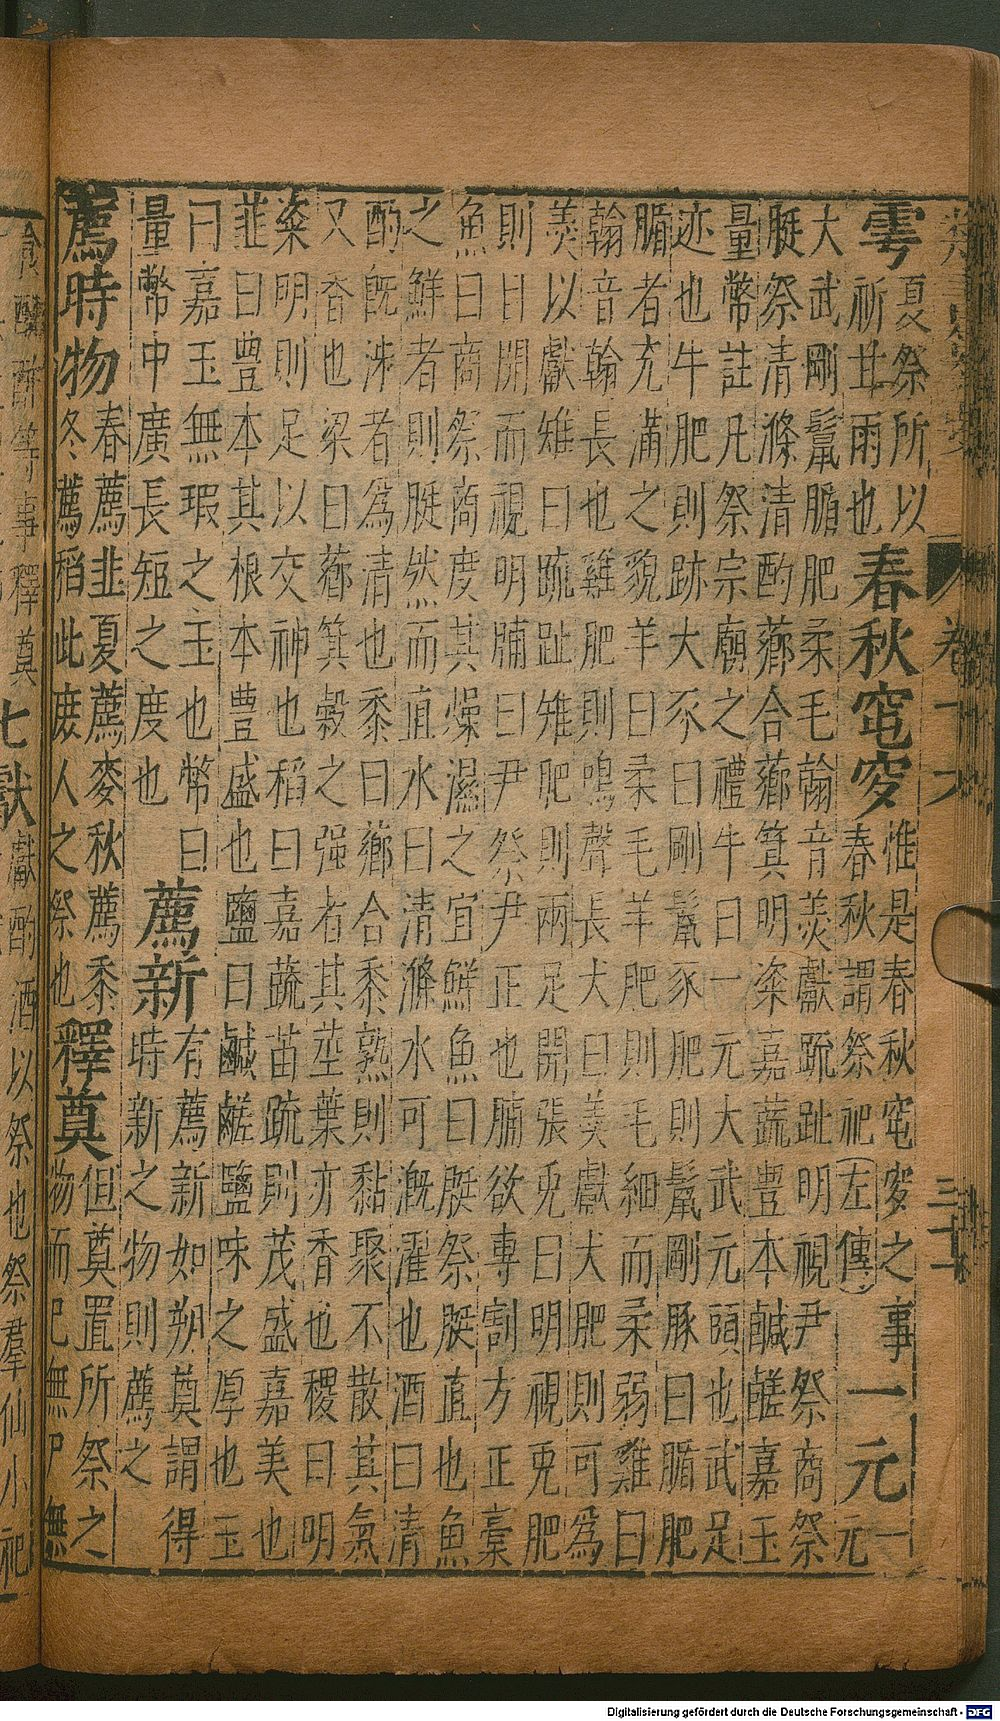 雩夏祭所以
祈甘雨也
春秋窀穸惟是春秋窀穸之事
春秋謂祭祀(左傳)
一元一
元
大武剛鬣腯肥柔毛翰音羹獻疏趾明視尹祭商祭
脡祭清滌清酌薌合薌箕明粢嘉蔬豊本鹹鹺嘉玉
量幣註凡祭宗廟之禮牛曰一元大武元頭也武足
迹也牛肥則跡大豕曰剛鬣豕肥則鬣剛豚曰腯肥
腯者充滿之貌羊曰柔毛羊肥則毛細而柔弱雞曰
翰音翰長也雞肥則鳴聲長犬曰羹獻犬肥則可為
羹以獻雉曰疏趾雉肥則兩足開張兎曰明視兎肥
則目開而視明脯曰尹祭尹正也脯欲專割方正槀
魚曰商祭商度其燥濕之宜鮮魚曰脡祭脡直也魚
之鮮者則脡然而直水曰清滌水可漑濯也酒曰清
酌旣泲者為清也黍曰薌合黍熟則黏聚不散其氣
又香也粱曰薌箕穀之强者其莖葉亦香也稷曰明
粢明則足以交神也稻曰嘉蔬苗疏則茂盛嘉美也
韮曰豊本其根本豊盛也鹽曰鹹鹺鹽味之厚也玉
曰嘉玉無瑕之玉也幣曰
量幣中廣長短之度也
薦新有薦新如朔奠謂得
時新之物則薦之
薦時物春薦韭夏薦麥秋薦黍
冬薦稻此庶人之祭也
釋奠但奠置所祭之
物而已無尸無
等事釋奠七獻獻酌酒以祭也祭羣仙小祀
Digitalisierung gefördert durch die Deutsche Forschungsgemeinschaft - DFG